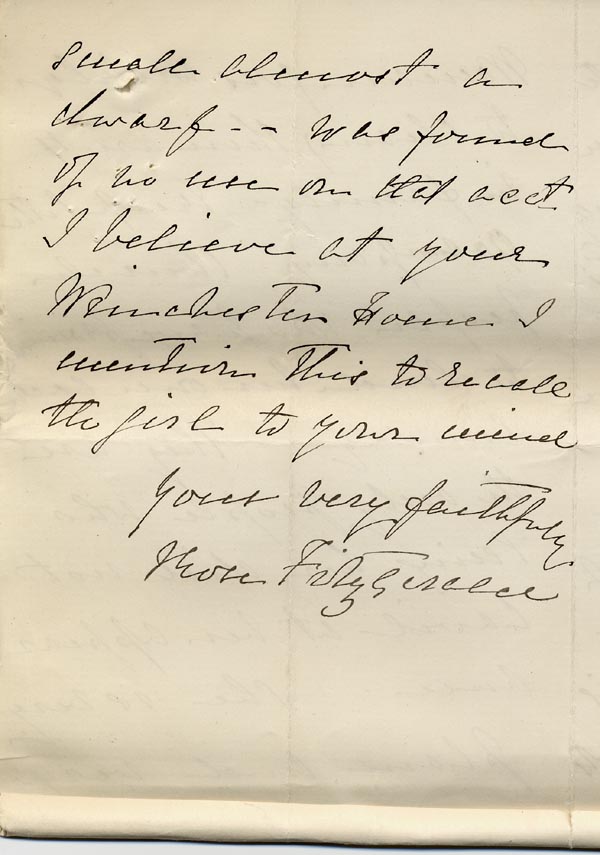 small almost a
dwarf - - was found
of no use on that acct
I believe at your
Winchester Home I
mention this to recall
the girl to your mind
Yours very faithfully
Rose FitzGerald